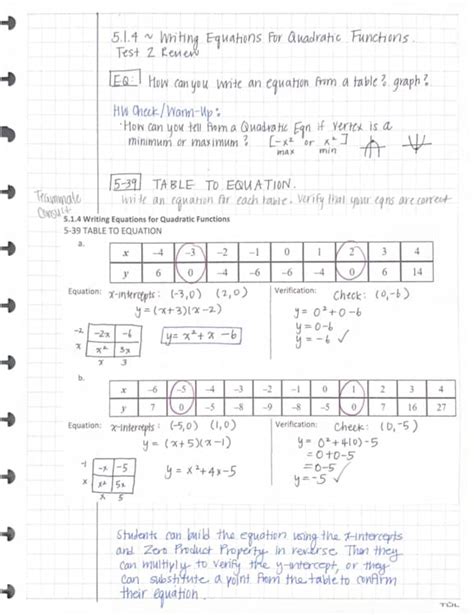 5.1.4 ~ Writing Equations For Quadratic Functions.
Test 2 Review
EQ: How can you write an equation from a table? graph?
HW Check/Warm-Up:
· How can you tell from a Quadratic Eqn if vertex is a
minimum or maximum? [-x² or x²]
max min
5-39 TABLE TO EQUATION.
Teammate
Consult
Write an equation for each table. Verify that your eqns are correct
5.1.4 Writing Equations for Quadratic Functions
5-39 TABLE TO EQUATION
a.
x -4 -3 -2 -1 0 1 2 3 4
y 6 0 -4 -6 -6 -4 0 6 14
Equation: x-intercepts: (-3,0) (2,0) Verification: Check: (0,-6)
y=(x+3)(x-2) y=0²+0-6
y=0-6
y=-6 ✓
-2 -2x -6
x x² 3x
x 3
y=x²+x-6
b.
x -6 -5 -4 -3 -2 -1 0 1 2 3 4
y 7 0 -5 -8 -9 -8 -5 0 7 16 27
Equation: x-intercepts: (-5,0) (1,0) Verification: Check: (0,-5)
y=(x+5)(x-1) y=0²+4(0)-5
=0+0-5
=0-5
y=-5 ✓
-1 -x -5
x x² 5x
x 5
y=x²+4x-5
Students can build the equation using the x-intercepts
and Zero Product Property in reverse. Then they
can multiply to verify the y-intercept, or they
can substitute a point from the table to confirm
their equation.